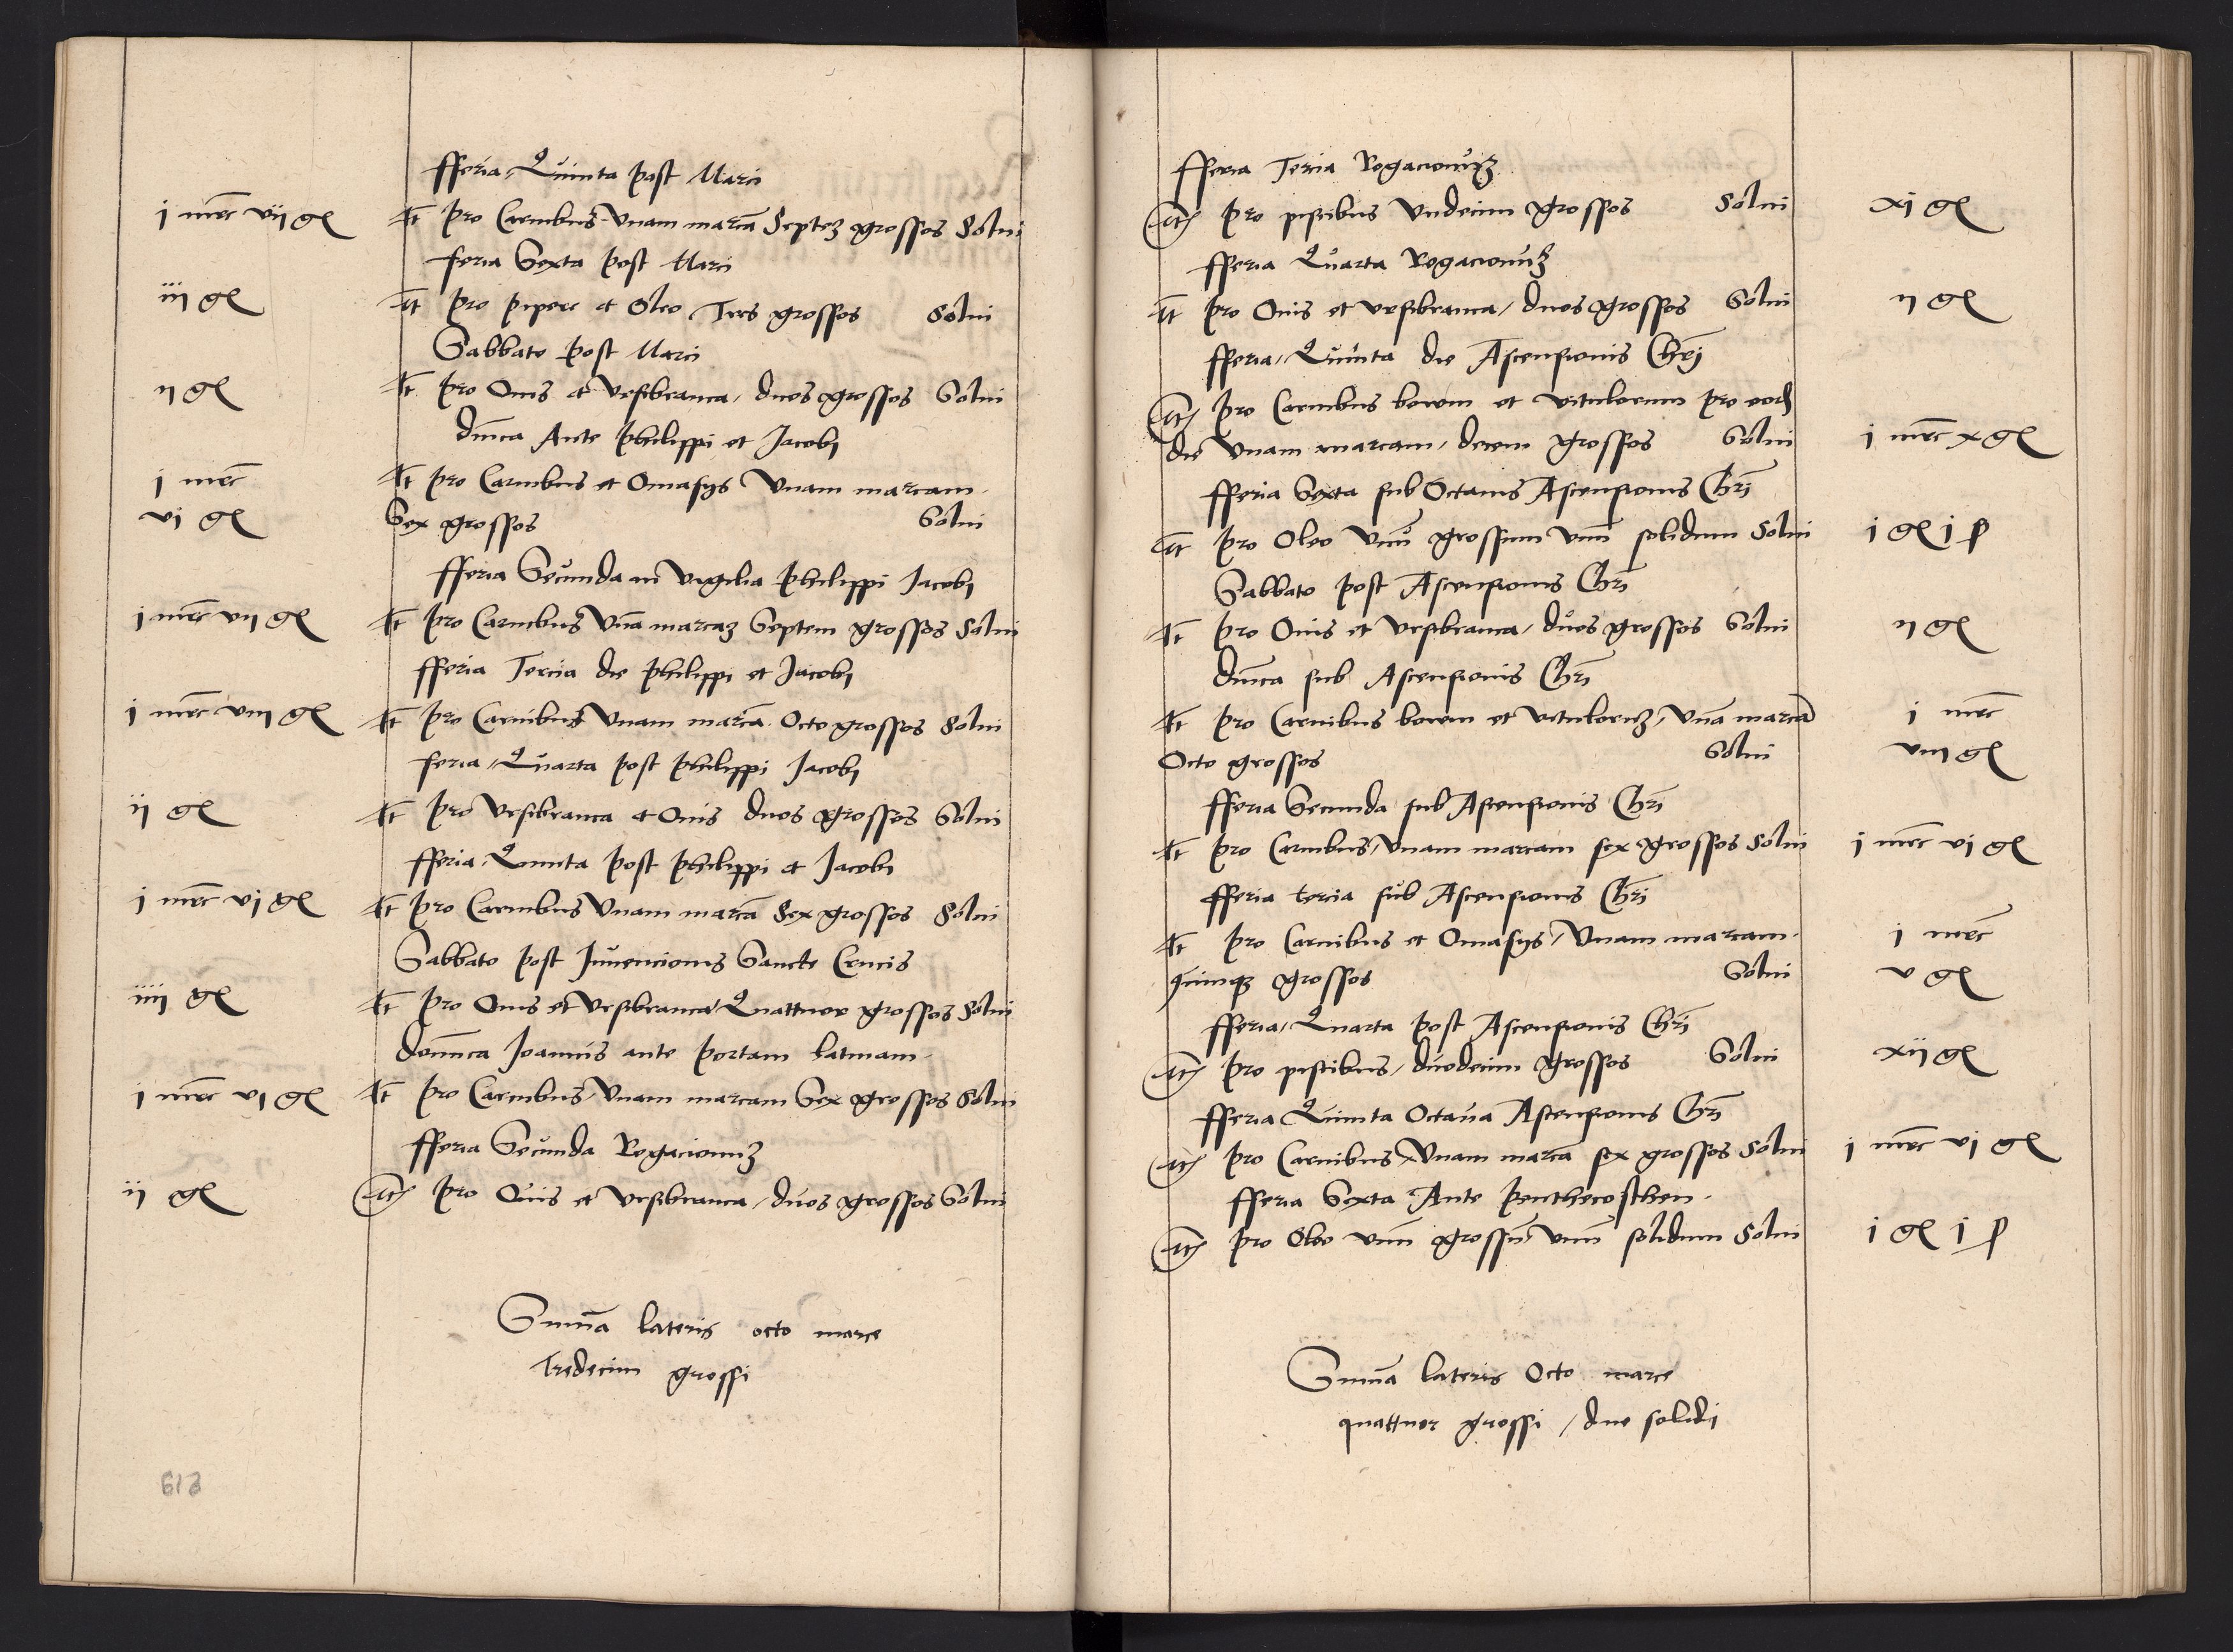 fferia Quinta post Marci
j mrc vij gl It pro Carnibus Unam marcã Septeʒ grossos Solui
feria Sexta post Marci
iij gl It pro pipere et Oleo Tres grossos Solui
Sabbato post Marci
ij gl It pro Ouis et Ursibranca, duos grossos Solui
dm̄ca Ante Philippi et Jacobj
j mrc It pro Carnibus et Omasijs Unam marcam
vj gl Sex grossos Solui
fferia Secunda in vigilia Philippi Jacobj
j mrc vij gl It pro Carnibus Unã marcaʒ Septem grossos Solui
fferia Tercia die Philippi et Jacobj
j mrc viij gl It pro Carnibus Unam marcã Octo grossos Solui
feria Quarta post Philippi Jacobj
ij gl It pro Ursibranca et Ouis duos grossos Solui
fferia Quinta post Philippi et Jacobi
j mrc vj gl It pro Carnibus Unam marcã Sex grossos Solui
Sabbato post Inuencionis Sancte Crucis
iiij gl It pro Ouis et Ursibranca Quattuor grossos Solui
dom̄ca Joannis ante portam latinam
j mrc vj gl It pro Carnibus Unam marcam Sex grossos Solui
fferia Secunda Rogacionuʒ
ij gl It pro Ouis et Ursibranca, duos grossos Solui
Sum̄a lateris octo marce
tredecim grossi
613
fferia Tercia Rogacionuʒ
It pro piscibus Undecim grossos Solui xj gl
fferia Quarta Rogacionuʒ
It pro Ouis et Ursibranca, duos grossos Solui ij gl
fferia Quinta die Ascensionis Chrj
It pro Carnibus bouum et vitulorum pro eod
die Unam marcam, decem grossos Solui j mrc x gl
fferia Sexta sub Octauis Ascensionis Chri
It pro Oleo Unũ grossum unũ solidum Solui j gl j ß
Sabbato post Ascensionis Chri
It pro Ouis et Ursibranca, duos grossos Solui ij gl
dm̄ca sub Ascensionis Chri
It pro Carnibus bouum et vitulorũʒ, Unã marcã j mrc
Octo grossos Solui viij gl
fferia Secunda sub Ascensionis Chri
It pro Carnibus, Unam marcam sex grossos Solui j mrc vj gl
fferia tercia sub Ascensionis Chri
It pro Carnibus et Omasijs, Unam marcam j mrc
quinqʒ grossos Solui v gl
fferia Quarta post Ascensionis Chri
It pro piscibus, duodecim grossos Solui xij gl
fferia Quinta Octaua Ascensionis Chri
It pro Carnibus, Unam marcã sex grossos Solui j mrc vj gl
fferia Sexta Ante Penthecosthen
It pro Oleo unũ grossũ unũ solidum Solui j gl j ß
Sum̄a lateris Octo marce
quattuor grossi, duo solidi